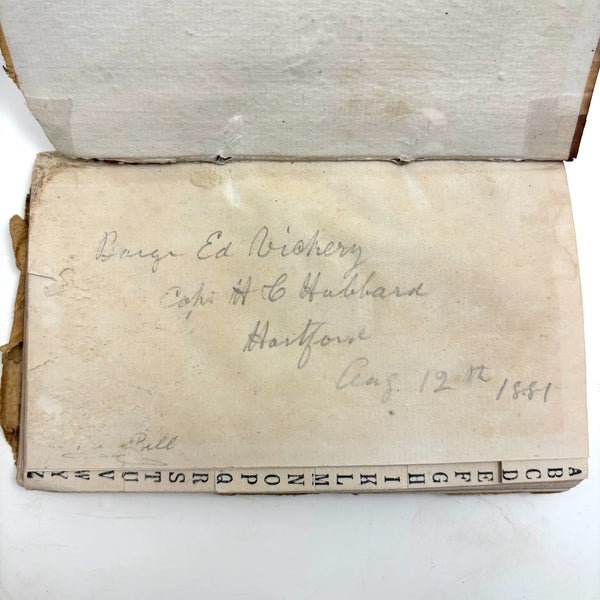 Barge Ed Vickery
Capt H C Hubbard
Hartford
Aug. 12th 1881
Bill
A B C D E F G H I K L M N O P Q R S T U V W Y Z